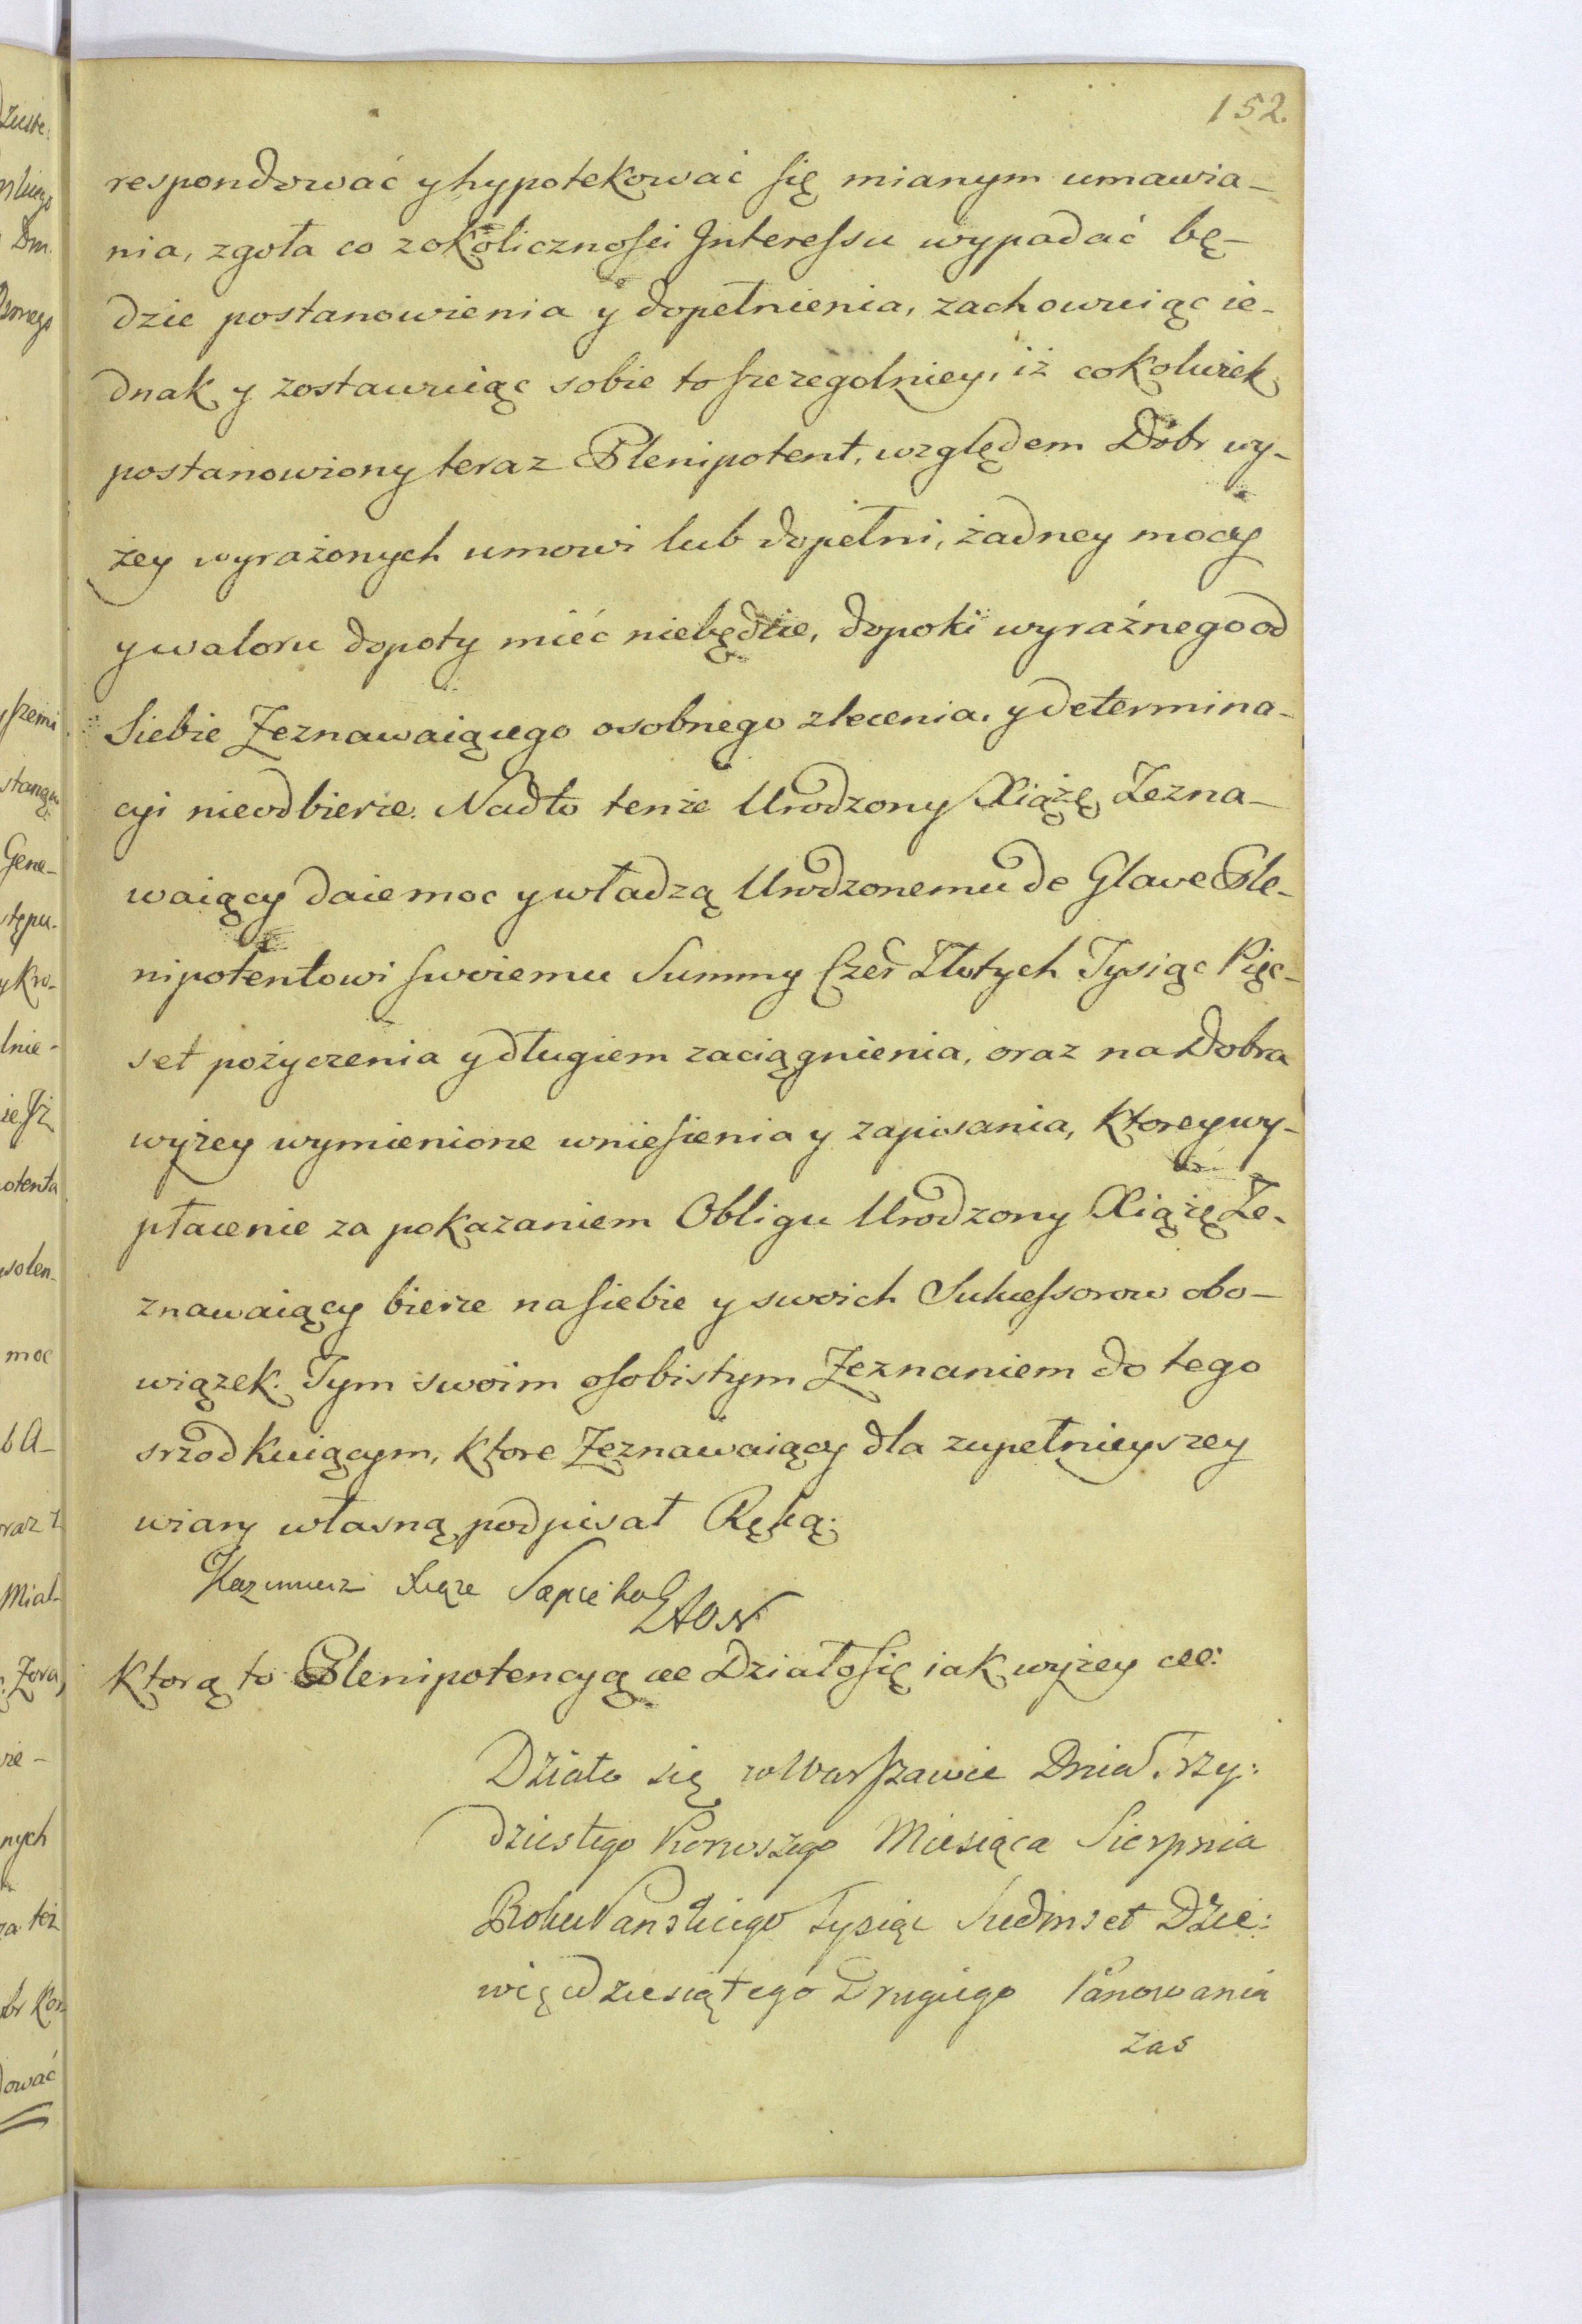 152.
respondować y hypotekować się mianym umawia-
nia, zgoła co z okoliczności Interessu wypadać bę-
dzie postanowienia y dopełnienia, zachowuiąc ie-
dnak y zostawuiąc sobie to szczegolniey, iż cokolwiek
postanowiony teraz Plenipotent, względem Dobr wy-
żey wyrażonych umowi lub dopełni, żadney mocy
y waloru dopoty mieć niebędzie, dopoki wyraźnego od
Siebie Zeznawaiącego osobnego zlecenia y determina-
cyi nieodbierze. Nadto tenże Urodzony Xiążę Zezna-
waiący daie moc y władzą Urodzonemu de Glave Ple-
nipotentowi swoiemu Summy Czer Złotych Tysiąc Pięc-
set pożyczenia y długiem zaciągnienia, oraz na Dobra
wyżey wymienione wniesienia y zapisania, ktorey wy-
płacenie za pokazaniem Obligu Urodzony Xiążę Ze-
znawaiący bierze na siebie y swoich Sukcessorow obo-
wiązek. Tym swoim osobistym Zeznaniem do tego
srzodkuiącym, ktore Zeznawaiący dla zupełnieyszey
wiary własną podpisał Ręką.
Kazimierz Xiąże Sapieha
Ktorą to Plenipotencyą &c Działo się iak wyżey &c:
Działo się w Warszawie Dnia Trzy:
dziestego Pierwszego Miesiąca Sierpnia
Roku Panskiego Tysiąc Siedmset Dzie:
więćdziesiątego Drugiego Panowania
zas